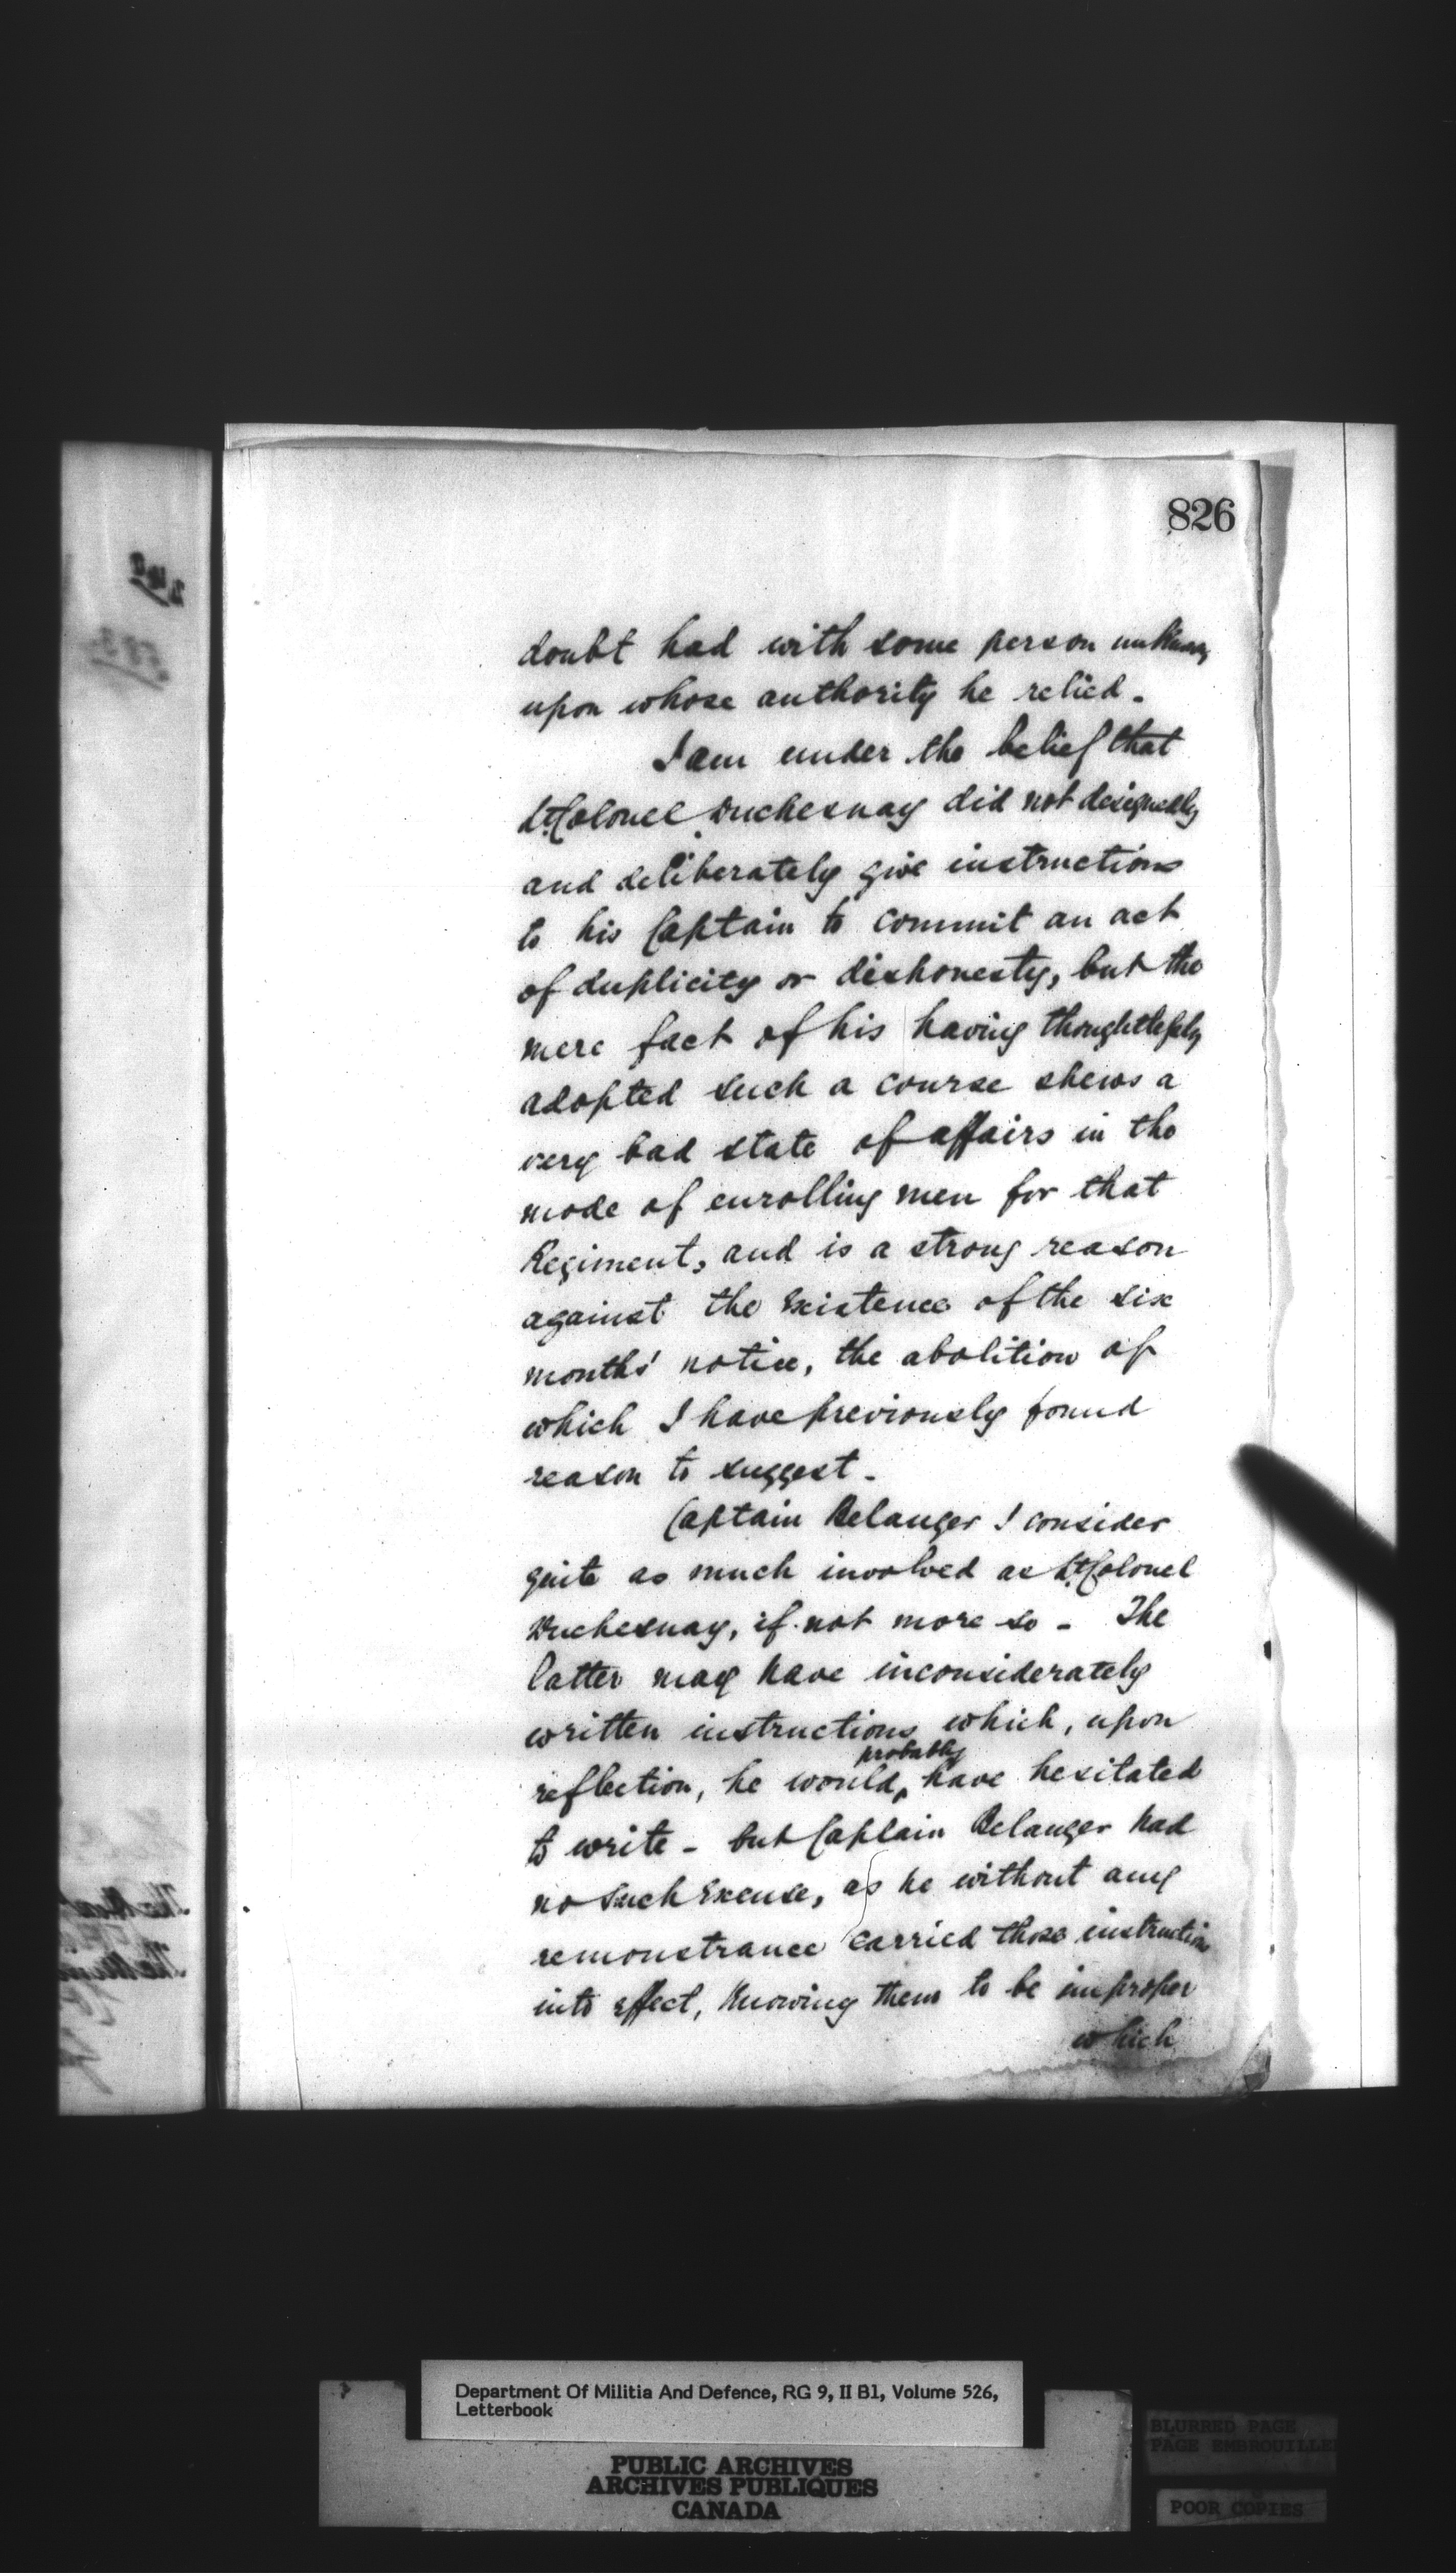 826
doubt had with some person unknown,
upon whose authority he relied.
I am under the belief that
Lt. Colonel Duchesnay did not designedly
and deliberately give instructions
to his Captain to commit an act
of duplicity or dishonesty, but the
mere fact of his having thoughtlessly
adopted such a course shews a
very bad state of affairs in the
mode of enrolling men for that
Regiment, and is a strong reason
against the existence of the six
months' notice, the abolition of
which I have previously found
reason to suggest.
Captain Belanger I consider
quite as much involved as Lt. Colonel
Duchesnay, if not more so - The
latter may have inconsiderately
written instructions which, upon
probably
reflection, he would have hesitated
to write - but Captain Belanger had
no such excuse, as he without any
remonstrance carried those instructions
into effect, knowing them to be improper
which
Department Of Militia And Defence, RG 9, II B1, Volume 526,
Letterbook
PUBLIC ARCHIVES
ARCHIVES PUBLIQUES
CANADA
BLURRED PAGE
PAGE EMBROUILLEE
POOR COPIES